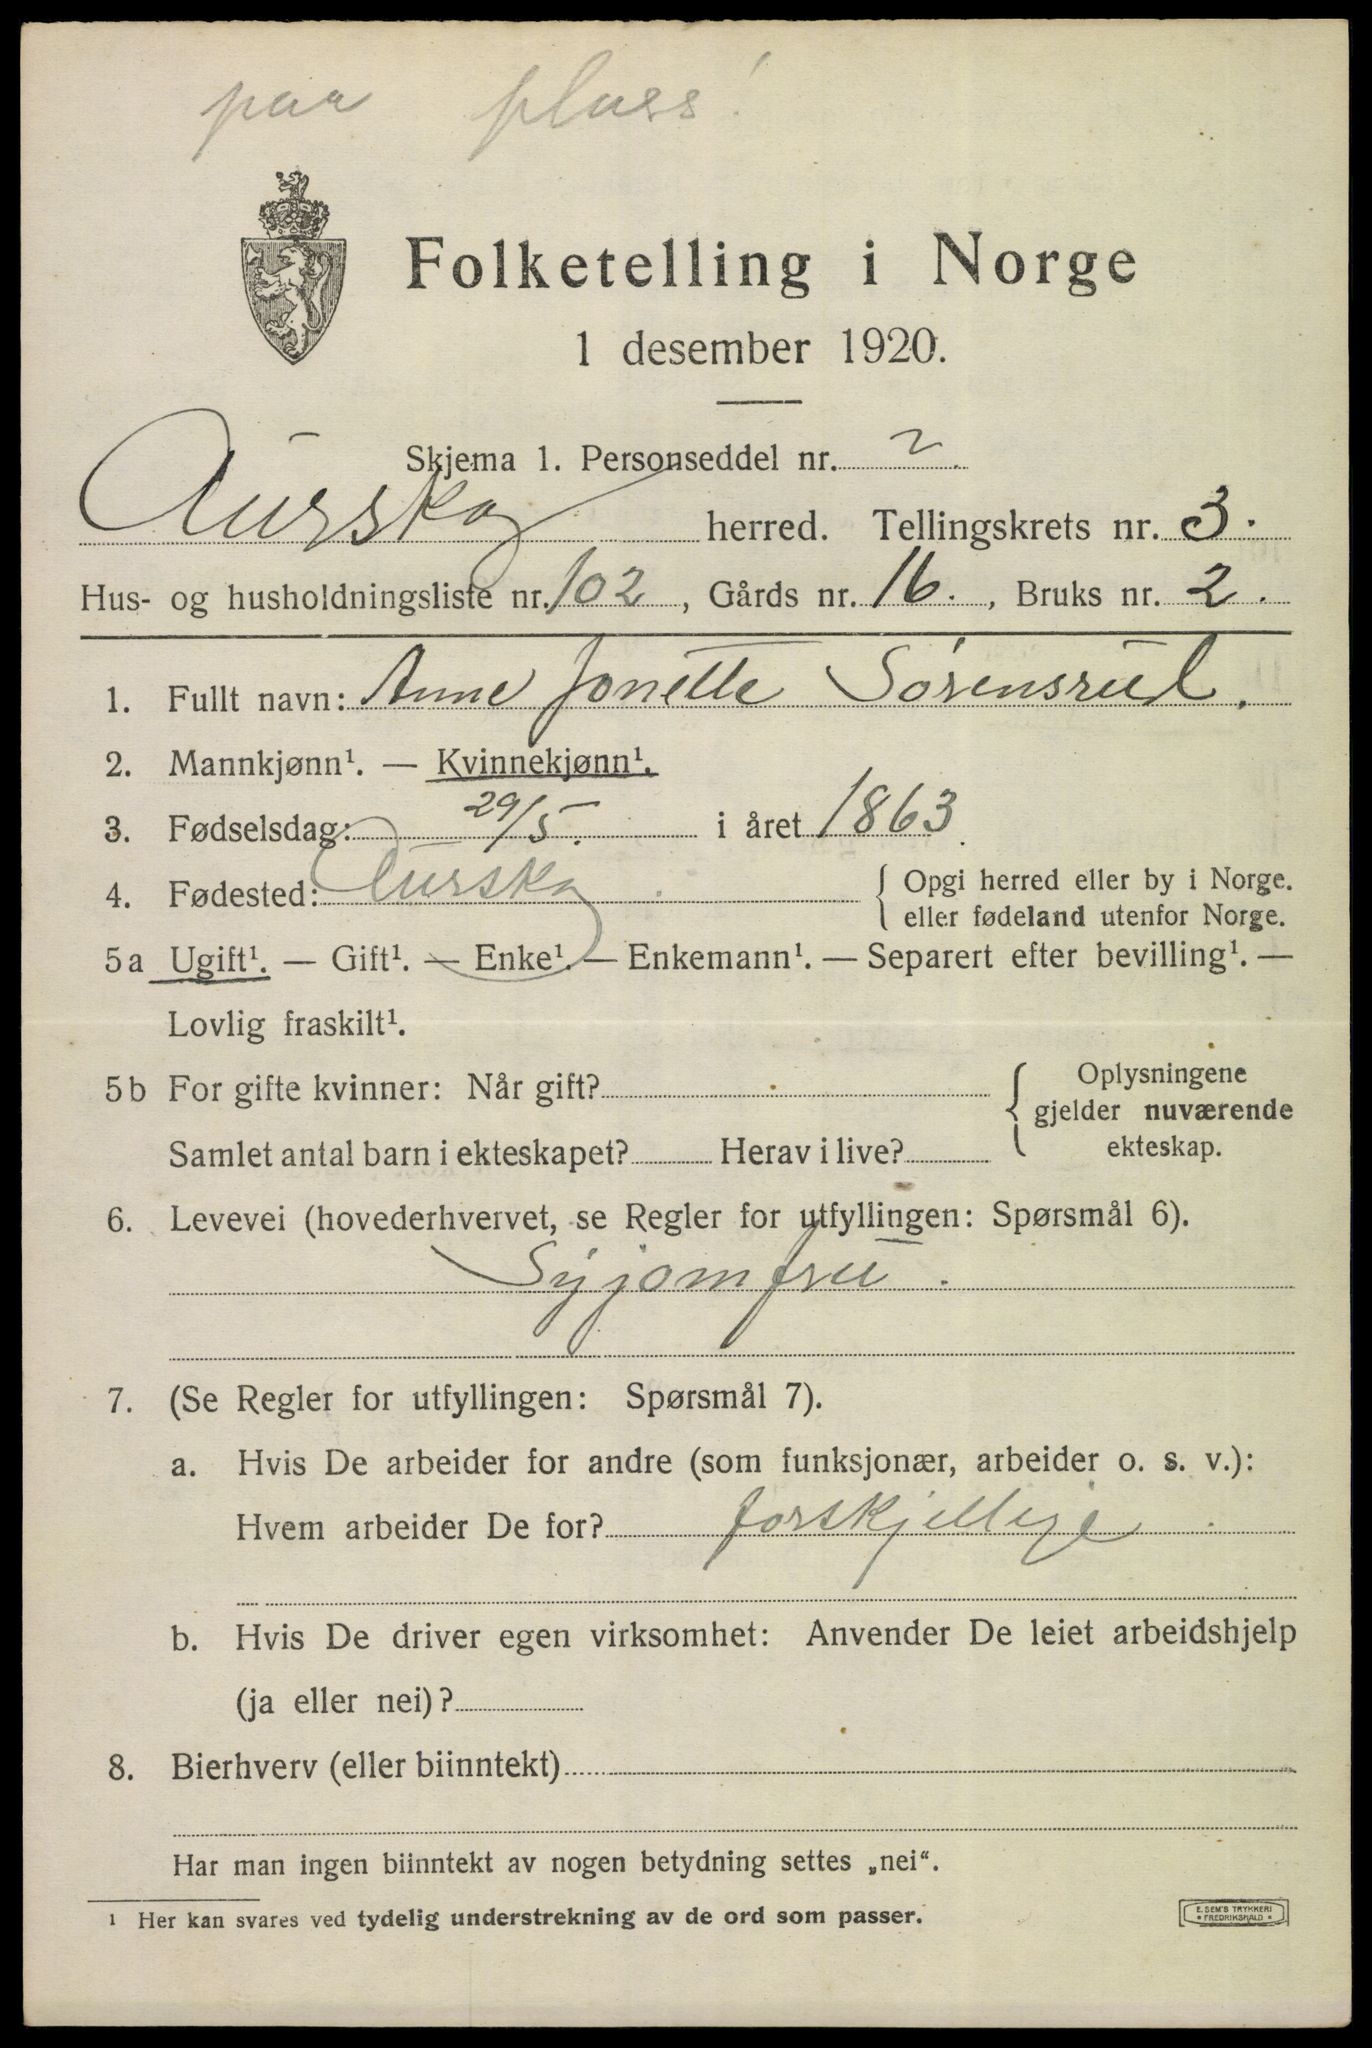 paa plass
Folketelling i Norge
1 desember 1920.
Skjema 1. Personseddel nr. 2.
Aurskog herred. Tellingskrets nr. 3.
Hus- og husholdningsliste nr. 102, Gårds nr. 16., Bruks nr. 2.
1. Fullt navn: Anne Jonette Sörensrud.
2. Mannkjønn¹. — Kvinnekjønn¹.
3. Fødselsdag: 29/5. i året 1863.
4. Fødested: Aurskog. { Opgi herred eller by i Norge.
eller fødeland utenfor Norge.
5a Ugift¹. — Gift¹. — Enke¹. — Enkemann¹. — Separert efter bevilling¹. —
Lovlig fraskilt¹.
5b For gifte kvinner: Når gift? { Oplysningene
gjelder nuværende
Samlet antal barn i ekteskapet? Herav i live? ekteskap.
6. Levevei (hovederhvervet, se Regler for utfyllingen: Spørsmål 6).
Syjomfru.
7. (Se Regler for utfyllingen: Spørsmål 7).
a. Hvis De arbeider for andre (som funksjonær, arbeider o. s. v.):
Hvem arbeider De for? forskjellige.
b. Hvis De driver egen virksomhet: Anvender De leiet arbeidshjelp
(ja eller nei)?
8. Bierhverv (eller biinntekt)
Har man ingen biinntekt av nogen betydning settes „nei“.
¹ Her kan svares ved tydelig understrekning av de ord som passer.
E. SEM'S TRYKKERI
* FREDRIKSHALD *